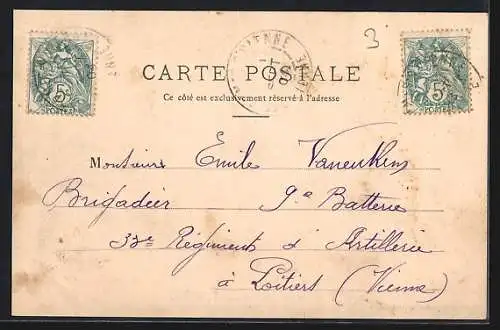 3
CARTE POSTALE
Ce côté est exclusivement réservé à l'adresse
Monsieur Emile
Brigadier 9e Batterie
33e Régiment d'Artillerie
à Poitiers (Vienne)
5c
POSTES
5c
POSTES